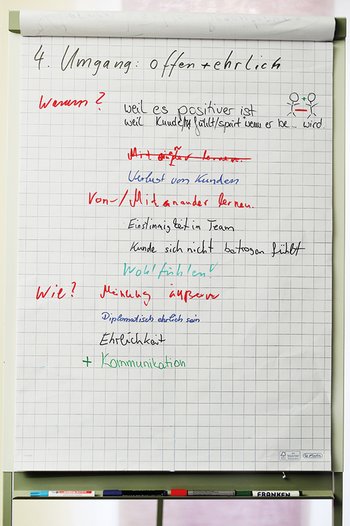 4. Umgang: offen + ehrlich
Warum? weil es positiver ist
weil Kunde fühlt/spürt wenn er be... wird
Miteinander lernen
Verlust von Kunden
Von-/Miteinander lernen.
Einstimmigkeit in Team
Kunde sich nicht betrogen fühlt
Wohlfühlen
Wie? Meinung äußern
Diplomatisch ehrlich sein
Ehrlichkeit
+ Kommunikation
FRANKEN